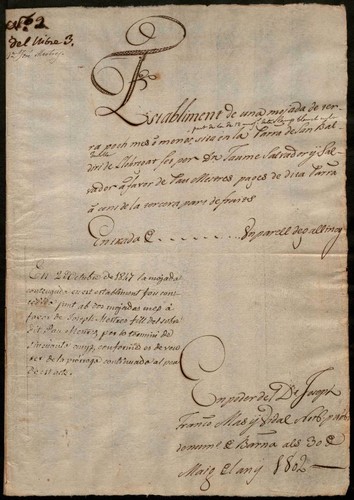 Nº 2
del llibre 3.
Establiment de una mojada de ter-
ra poch mes o menos, sita en la Parra de San Bal-
diri de Llobregat fet per Dn Jaume Salvador y Sal-
vador a favor de Pau Mestres pages de dita Parra
a cens de la tercera part de fruits
Entrada £ . . . . . . . Un parell de gallinas
En 2 Octubre de 1847 la mojada
contenguda en est establiment fou con-
cedida junt ab dos mojadas mes a
favor de Joseph Mestres fill del sobre
dit Pau Mestres, per lo termini de
cinquanta anys, conforme es de veu-
rer de la próroga continuada al peu
de est acte.
En poder de Dn Joseph
Franco Mas y Vidal Noty. pubh
de Barna als 30 de
Maig del any 1802